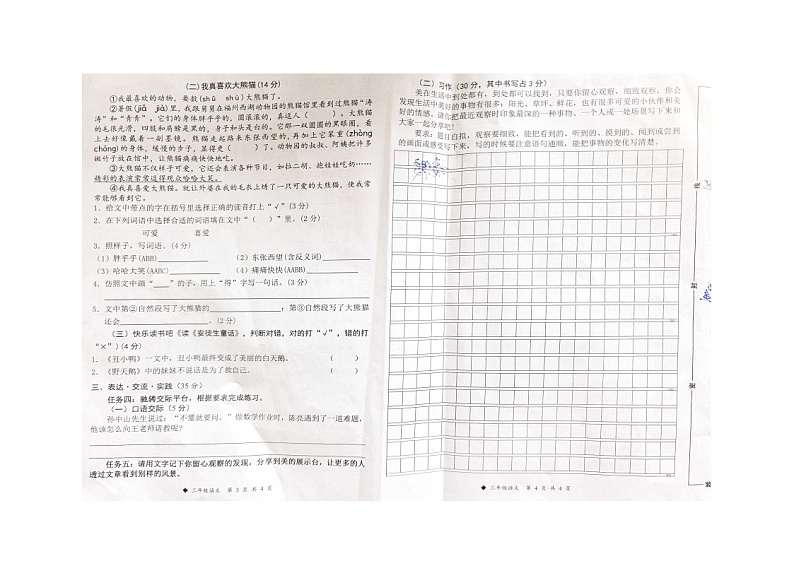 (二)我真喜欢大熊猫(14分)
①我最喜欢的动物，要数(shǔ shù)大熊猫了。
②暑假(jiǎ jià)里，我跟舅舅在福州西湖动物园的熊猫馆里看到过熊猫“涛
涛”和“青青”。它们的身体胖乎乎的，圆滚滚的，真逗人( )。熊猫
的毛很光滑，四肢和肩膀是黑的，身子和头是白的。它那一双圆圆的黑眼圈，看
上去好像戴了一副墨镜。熊猫走起路来东张西望的，再加上它笨重(zhòng
chóng)的身体，缓慢的步子，显得更( )了。动物园的叔叔、阿姨把许多
嫩竹子放在馆中，让熊猫痛痛快快地忙。
③大熊猫不仅样子可爱，它还会表演各种节目，如拉二胡、抱娃娃吃奶……
精彩的表演常常逗得观众哈哈大笑。
④我真喜爱大熊猫。就让外婆在我的毛衣上绣了一只可爱的大熊猫，使我常
常能够看到它。
1. 给文中带点的字在括号里选择正确的读音打上“√”(3分)
2. 在下列词语中选择合适的词语填在文中“( )”里。(2分)
可爱 喜爱
3. 照样子，写词语。(4分)
(1)胖乎乎(ABB) (2)东张西望(含反义词)
(3)哈哈大笑(AABC) (4)痛痛快快(AABB)
4. 仿照文中画“____”的句子，用上“得”字写一句话。(3分)
5. 文中第②自然段写了大熊猫的 ；第③自然段写了大熊猫
还会 。(2分)
(三)快乐读书吧《读《安徒生童话》，判断对错，对的打“√”，错的打
“×”)(4分)
1. 《丑小鸭》一文中，丑小鸭最终变成了美丽的白天鹅。 ( )
2. 《野天鹅》中的妹妹不说话是为了救自己。 ( )
三、表达·交流·实践(35分)
任务四：驰骋交际平台，根据要求完成练习。
(一)口语交际(5分)
孙中山先生说过：“不懂就要问。”做数学作业时，陈亮遇到了一道难题，
他该怎么向王老师请教呢？
任务五：请用文字记下你留心观察的发现，分享到美的展示台，让更多的人
透过文章看到别样的风景。
◆ 三年级语文 第 3 页 共 4 页
(二)习作(30分，其中书写占3分)
美在生活中到处都有，到处都可以找到，只要你留心观察，细致观察，你会
发现生活中美好的事物有很多：阳光、草坪、鲜花，也有很多可爱的小伙伴和美
好的情感。请你把最近观察时印象最深的一种事物、一个人或一处场景写下来和
大家一起分享吧！
要求：题目自拟，观察要细致，能把看到的、听到的、摸到的、闻到或尝到
的画面或感受写下来，写的时候要注意语句通顺，能把事物的变化写清楚。
◆ 三年级语文 第 4 页 共 4 页
线
封
密
装